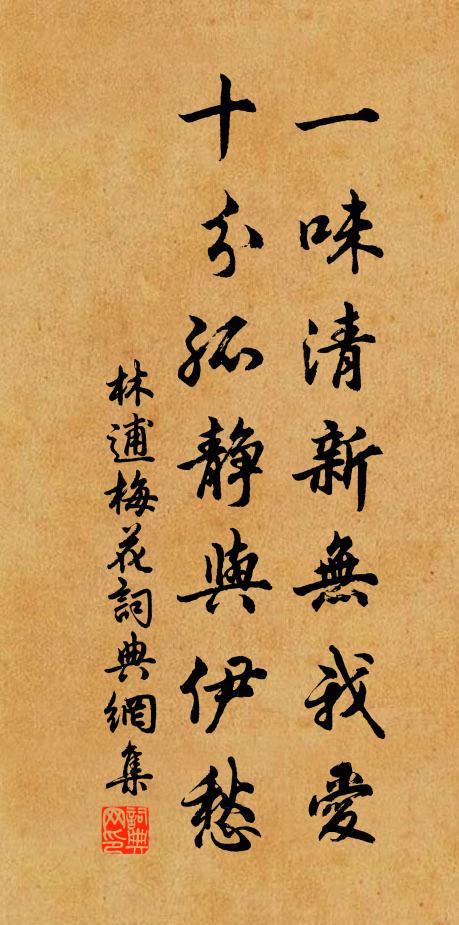 一味清新無我愛
十分孤靜與伊愁
林逋梅花詞典網集
詞典
网印